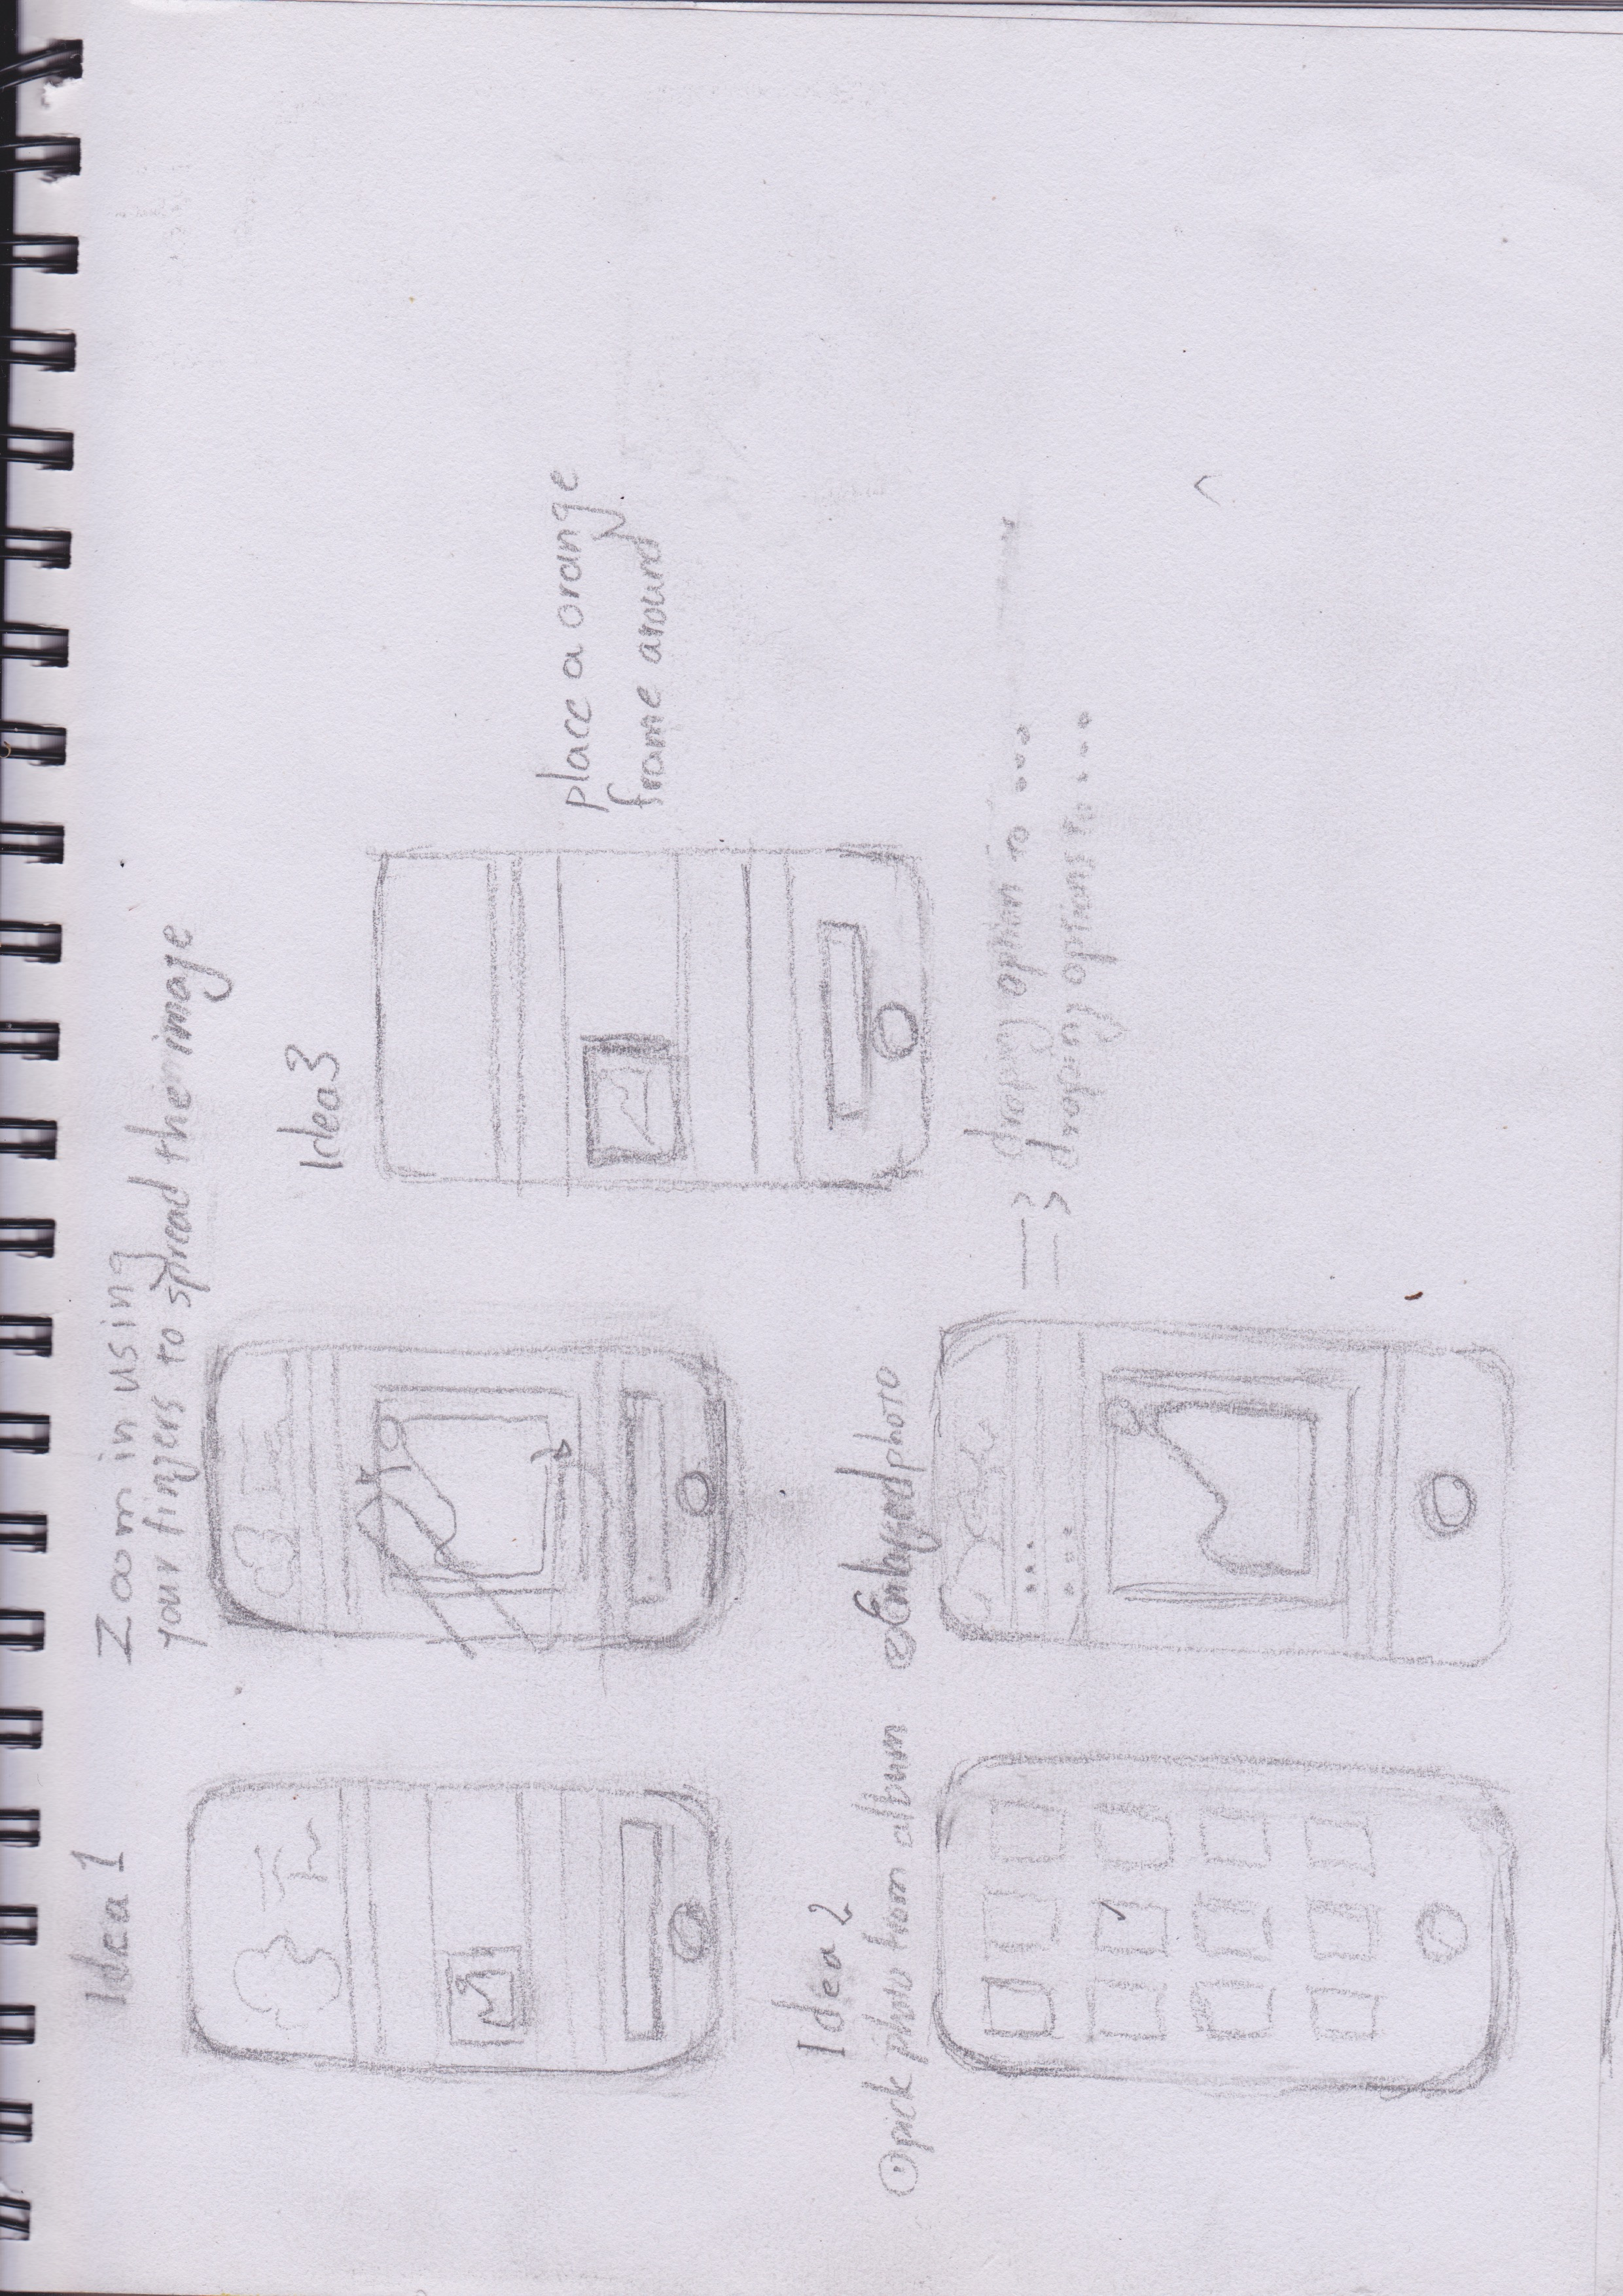 Idea 1
Zoom in using
your fingers to spread the image
Idea 3
place a orange
frame around
Idea 2
① pick photo from album
② Enlarged photo
option to ...
options to ...